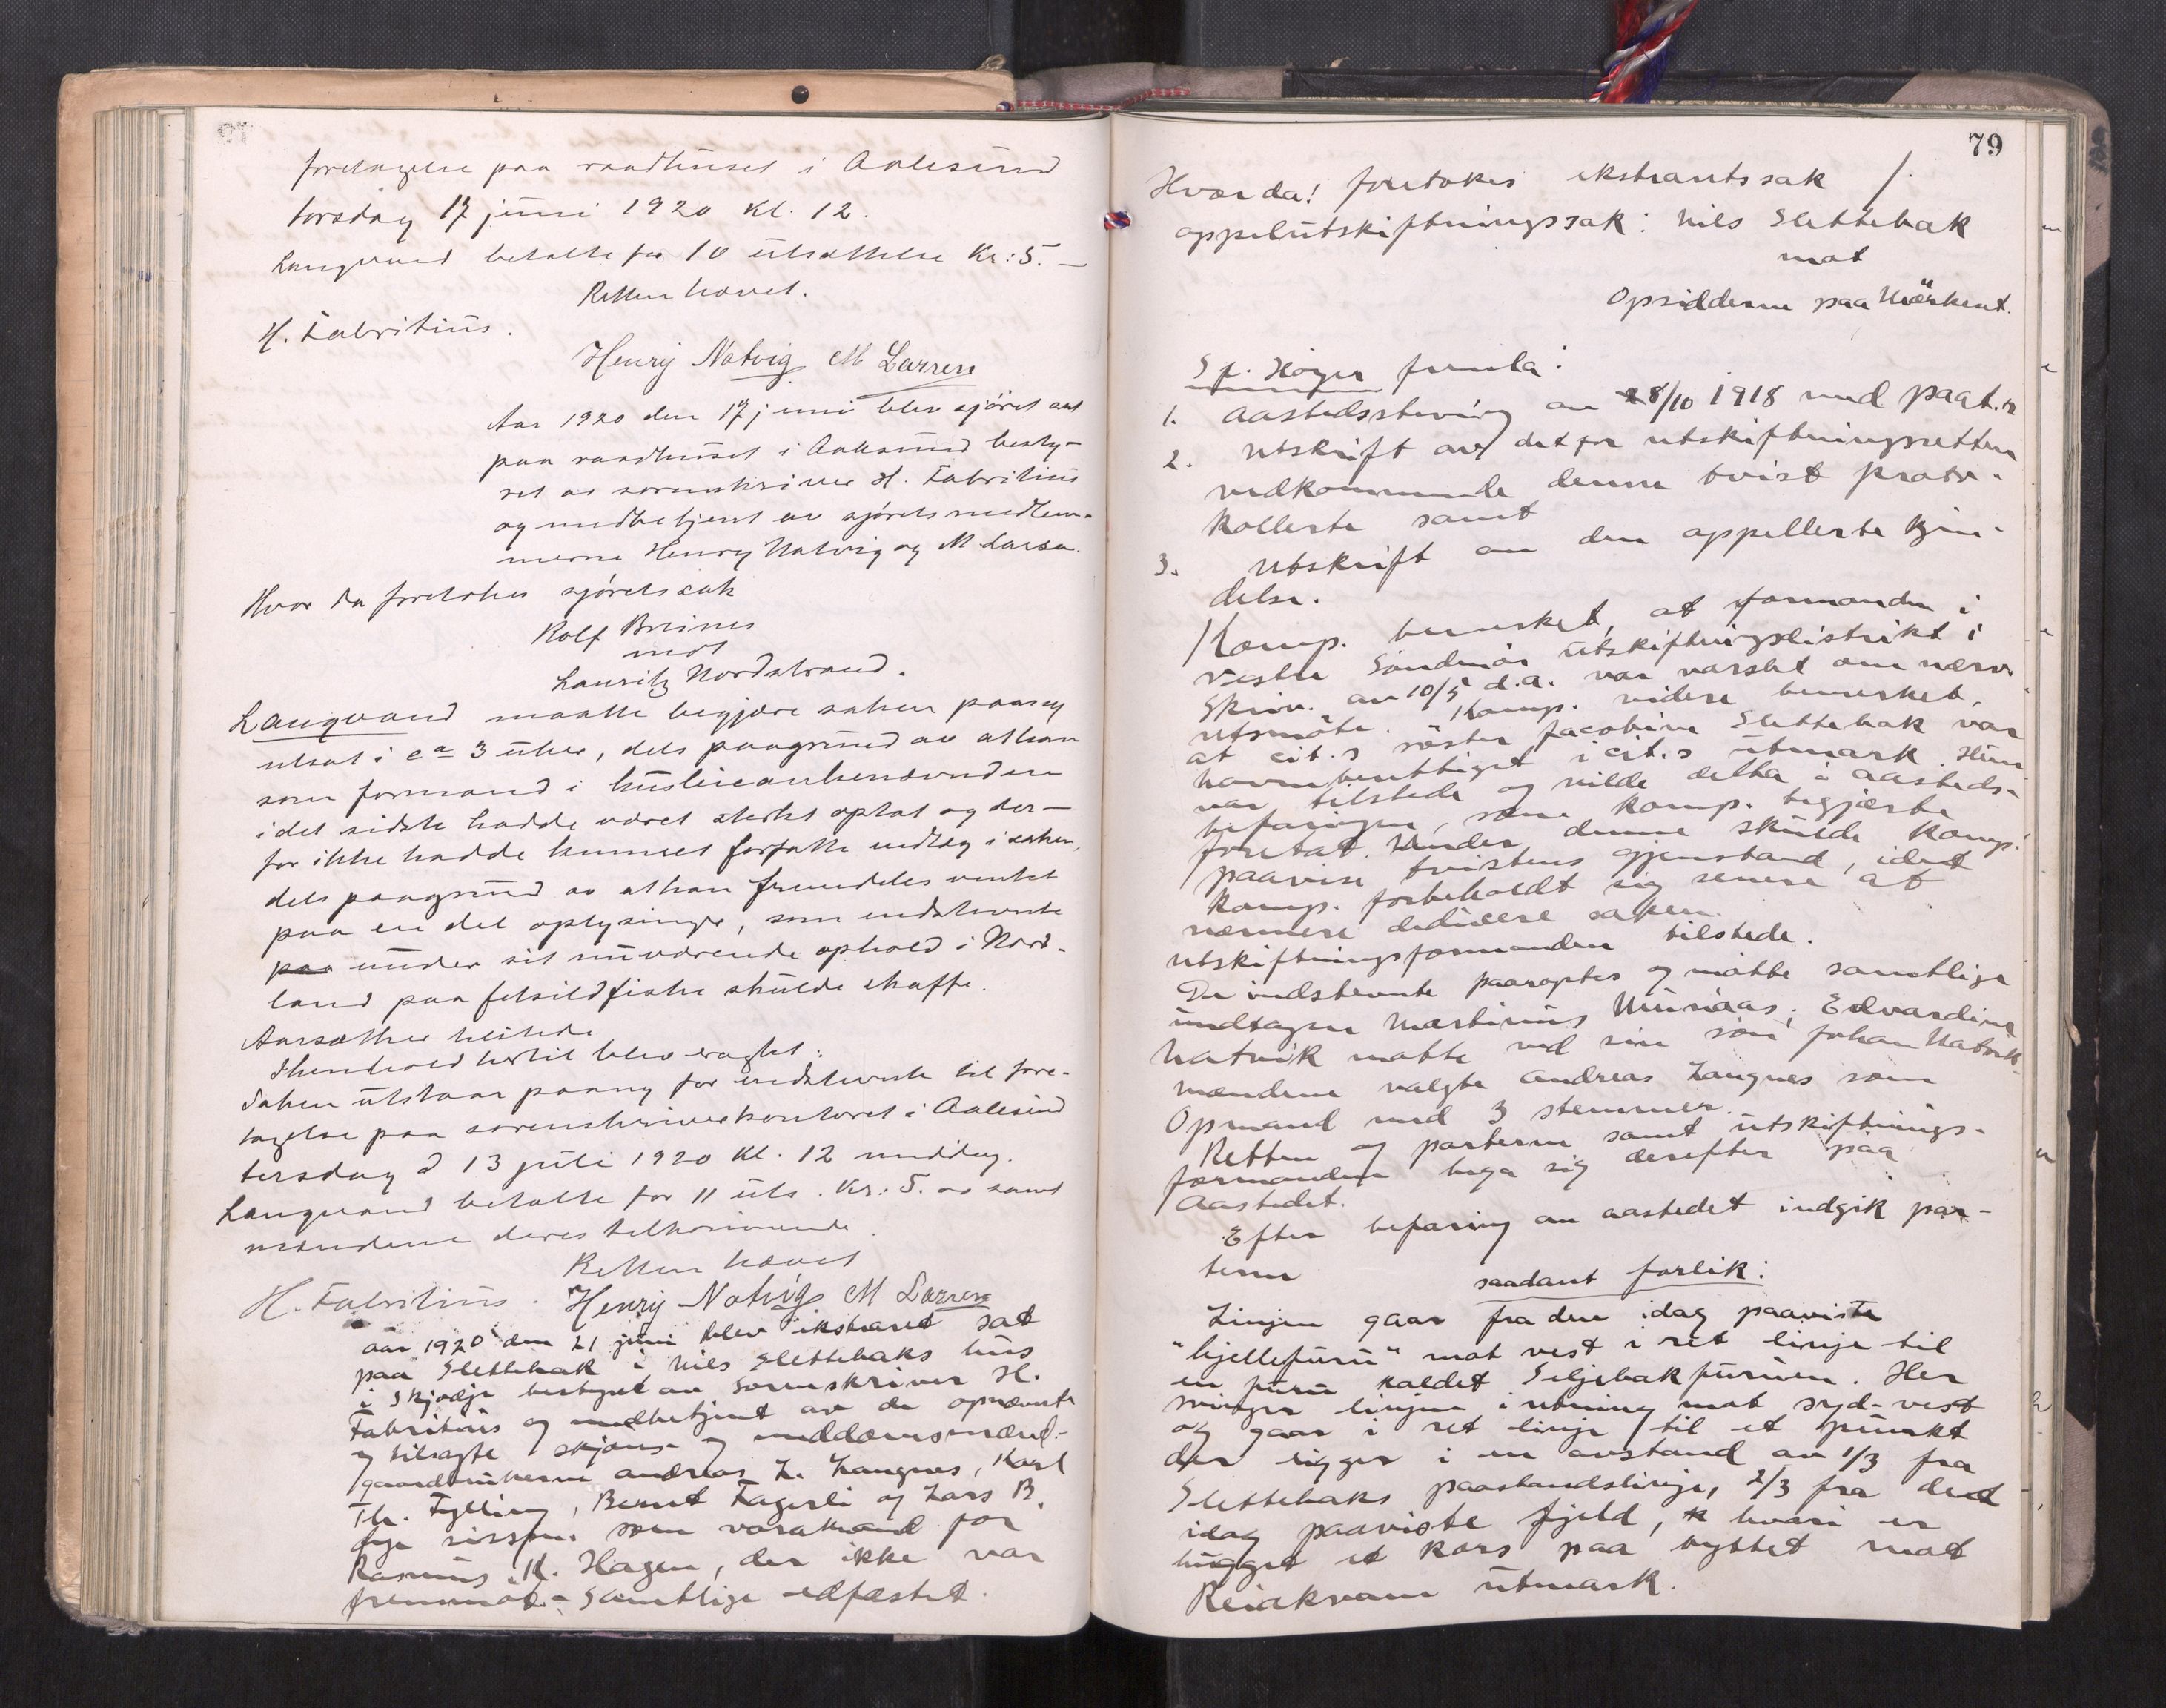 foretagelse paa raadhuset i Aalesund
torsdag 17 juni 1920 kl. 12.
Langvand betalte for 10 utsættelse Kr: 5. —
Retten hævet.
H. Fabritius.
Henry Natvig M Larsen
Aar 1920 den 17 juni blev sjøret sat
paa raadhuset i Aalesund besty-
ret av sorenskriver H. Fabritius
og medbetjent av sjøretsmedlem-
merne Henry Natvig og M Larsen.
Hvor da foretokes sjøretssak
Rolf Breines
mot
Lauritz Nordstrand.
Langvand maatte begjære saken paany
utsat i ca 3 uker, dels paagrund av at han
som formand i husleieankenævnden
i det sidste hadde været sterkt optat og der-
for ikke hadde kunnet forfatte indlæg i saken,
dels paagrund av at han fremdeles ventet
paa en del oplysninger, som indstevnte
paa under sit nuværende ophold i Nord-
land paa fetsildfiske skulde skaffe.
Aarsæther tilstede
I henhold hertil blev eragtet:
Saken utstaar paany for indstevnte til fore-
tagelse paa sorenskriverkontoret i Aalesund
tirsdag d 13 juli 1920 kl. 12 middag.
Langvand betalte for 11 uts. Kr: 5. oo samt
mændene deres tilkommende.
Retten hævet
H. Fabritius. Henry Natvig M Larsen
Aar 1920 den 21 juni blev ekstraret sat
paa Slettebak i Nils Slettebaks hus
i Skjodje bestyret av Sorenskriver H.
Fabritius og medbetjent av de opnævnte
og tilsagte skjøns- og meddomsmænd-
gaardbrukerne Andreas L. Langnes, Karl
Th. Fylling, Bernt Fagerli og Lars B.
som varamand for
Rasmus K. Hagen, der ikke var
fremmøt. - Samtlige edfæstet.
79
Hvor da! foretokes ekstraretssak /.
appelutskiftningssak: Nils Slettebak
mot
Opsidderne paa
S f. Høyer fremla:
1. Aastedsstevning av 28/10 1918 med paat.r
2. Utskrift av det for utskiftningsretten
vedkommende denne tvist proto-
kollerte samt
3. Utskrift av den appellerte kjen-
delse.
Komp. bemerket, at formanden i
vestre Søndmør utskiftningsdistrikt i
Skriv. av 10/5 d.a. var varslet om nærv.
retsmøte. Komp. videre bemerket,
at cit.s søster Jacobine Slettebak var
havneberettiget i cit.s utmark. Hun
var tilstede og vilde delta i aasteds-
befaringen, som komp. begjærte
foretat. Under denne skulde komp.
paavise tvistens gjenstand, idet
komp. forbeholdt sig senere at
nærmere deducere saken.
Utskiftningsformanden tilstede.
De indstevnte paaroptes og møtte samtlige
undtagen Martinus Muriaas; Edvardine
Natvik møtte ved sin søn Johan Natvik.
Mændene valgte Andreas Langnes som
Opmand med 3 stemmer.
Retten og parterne samt utskiftnings-
formanden begav sig derefter paa
Aastedet.
Efter befaring av aastedet indgik par-
terne saadant forlik:
Linjen gaar fra den idag paaviste
"hjellefuru" mot vest i ret linje til
en furu kaldet Seljebakfuruen. Her
svinger linjen i retning mot syd-vest
og gaar i ret linje til et punkt
der ligger i en avstand av 1/3 fra
Slettebaks paastandslinje, 2/3 fra det
idag paaviste fjeld, hvori er
hugget et kors paa byttet mot
Reiakvam utmark.